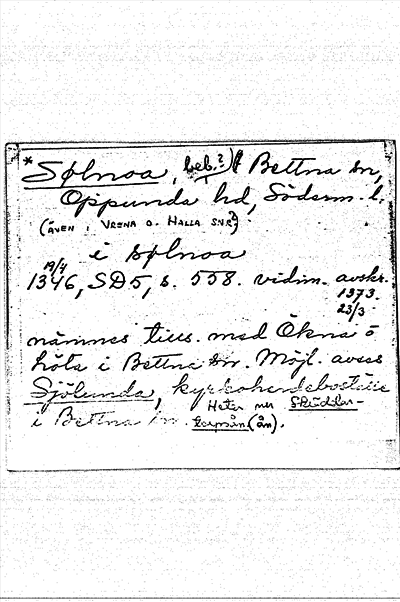 *Sølnoa, beb.?) Bettna sn,
Oppunda hd, Söderm. l.
(ÄVEN I VRENA O. HALLA SNR?)
i sølnoa
19/4
1346, SD5, s. 558. vidim. avskr.
1373.
23/3
nämnes tills. med Ökna ö
höta i Bettna sn. Möjl. avses
Sjölunda, kyrkoherdeboställe
i Bettna sn. Heter nu
(ån).